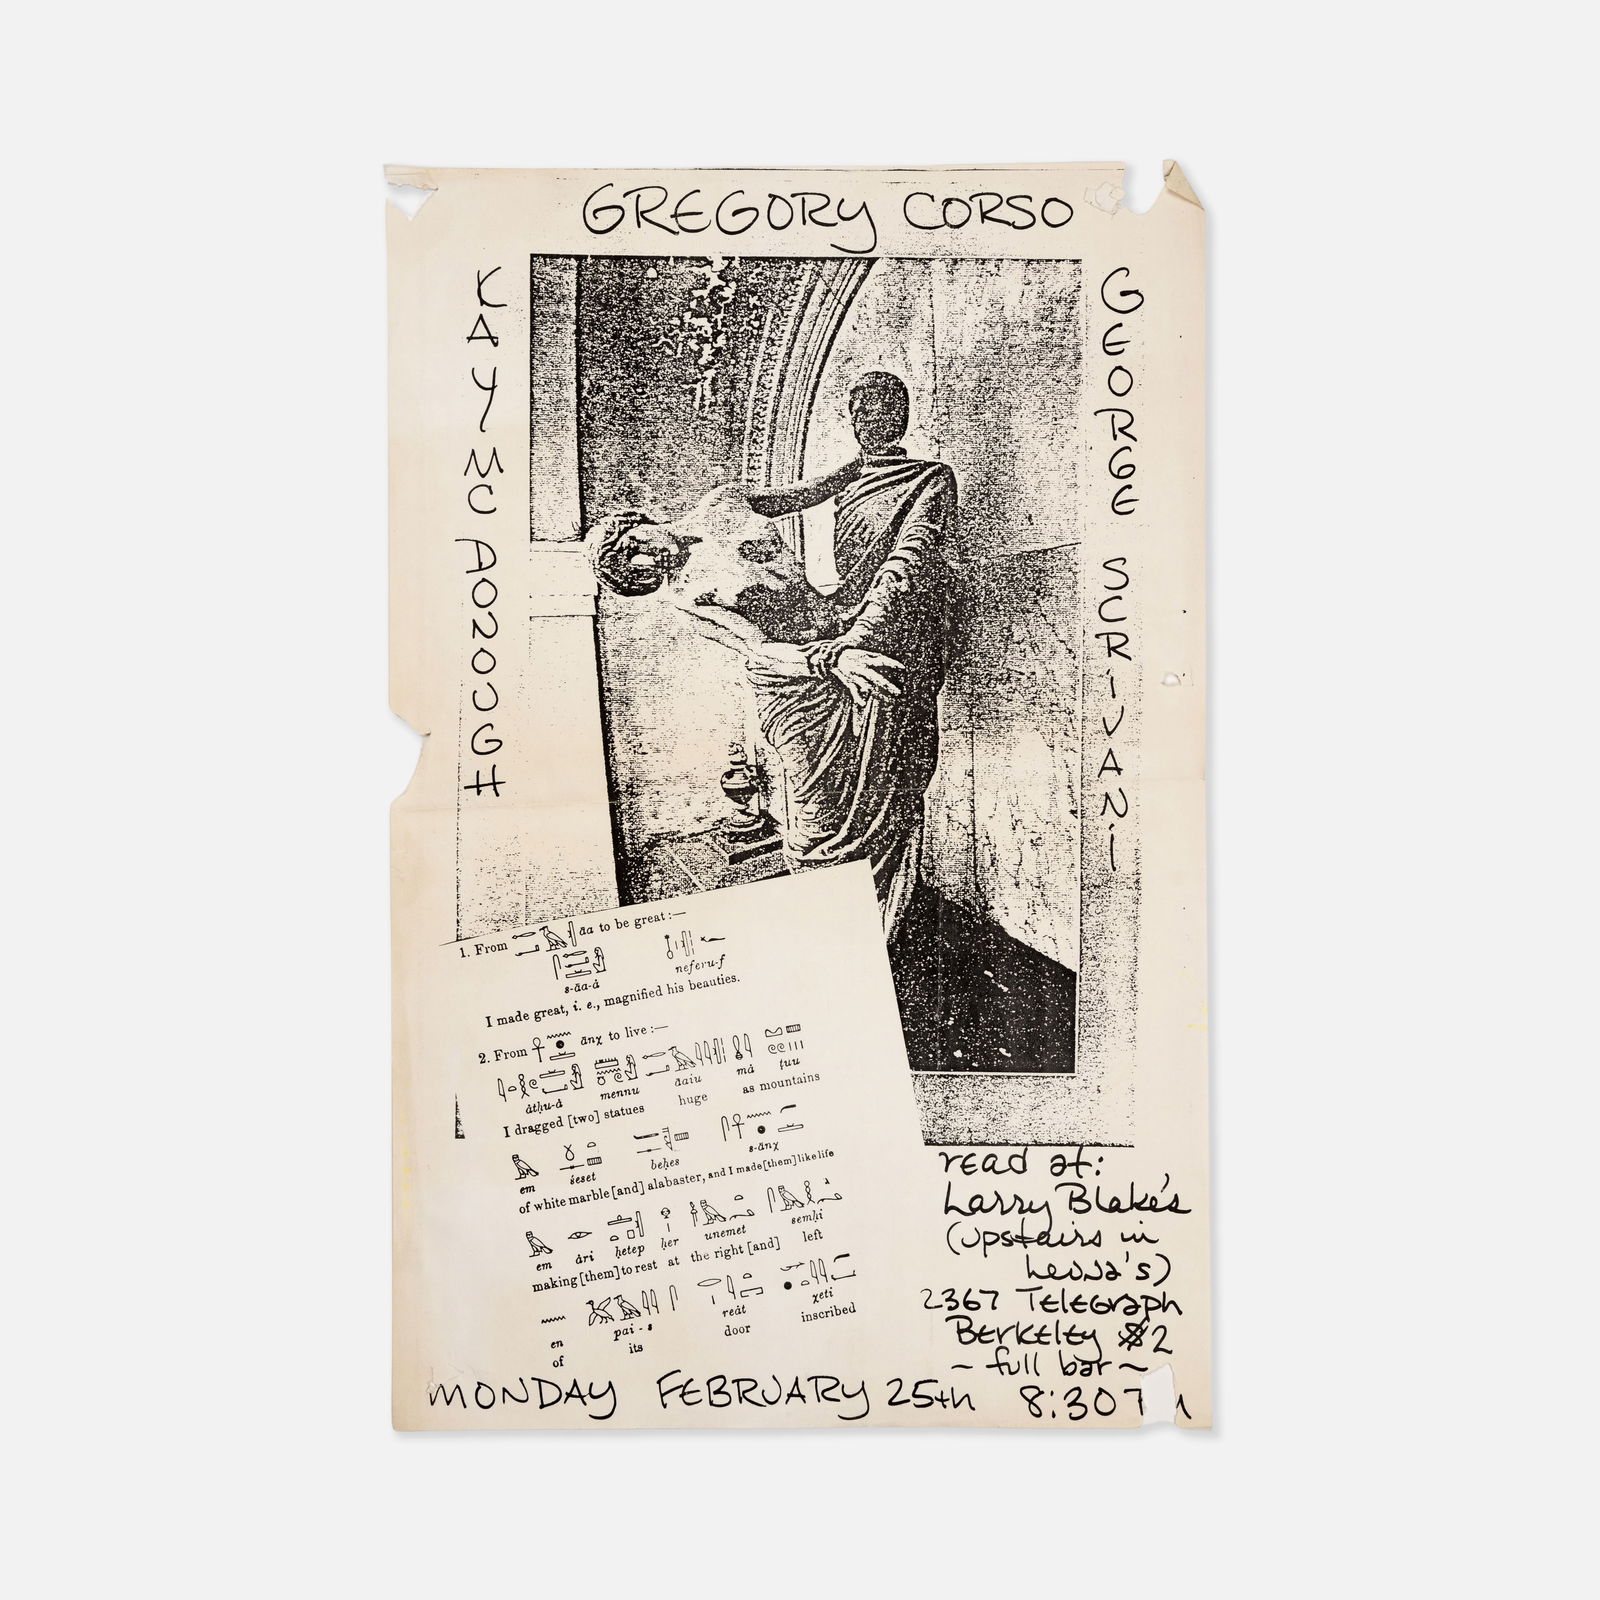 GREGORY CORSO
KAY MC DONOUGH
GEORGE SCRIVANI
1. From āa to be great :—
s-āa-ȧ neferu-f
I made great, i. e., magnified his beauties.
2. From ānχ to live :—
ȧtḥu-ȧ mennu āaiu mȧ ṭuu
I dragged [two] statues huge as mountains
em śeset beḥes s-ānχ
of white marble [and] alabaster, and I made [them] like life
em ȧri ḥetep ḥer unemet semḥi
making [them] to rest at the right [and] left
en pai - s reȧt χeti
of its door inscribed
read at:
Larry Blake's
(upstairs in
2367 Telegraph
Berkeley $2
~ full bar ~
MONDAY FEBRUARY 25th 8:30